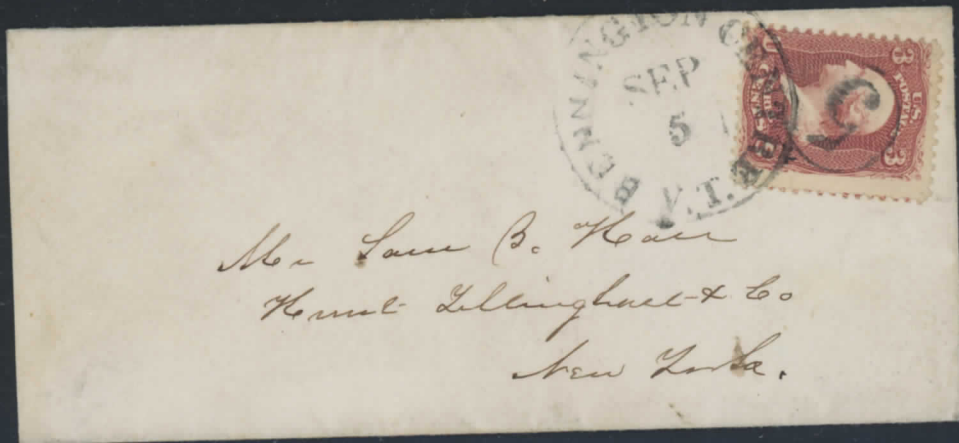 BENNINGTON CENTRE
SEP
5
V.T.
U.S.
POSTAGE
3 3
Mr Sam B. Hall
Hunt Tillinghast & Co
New York.